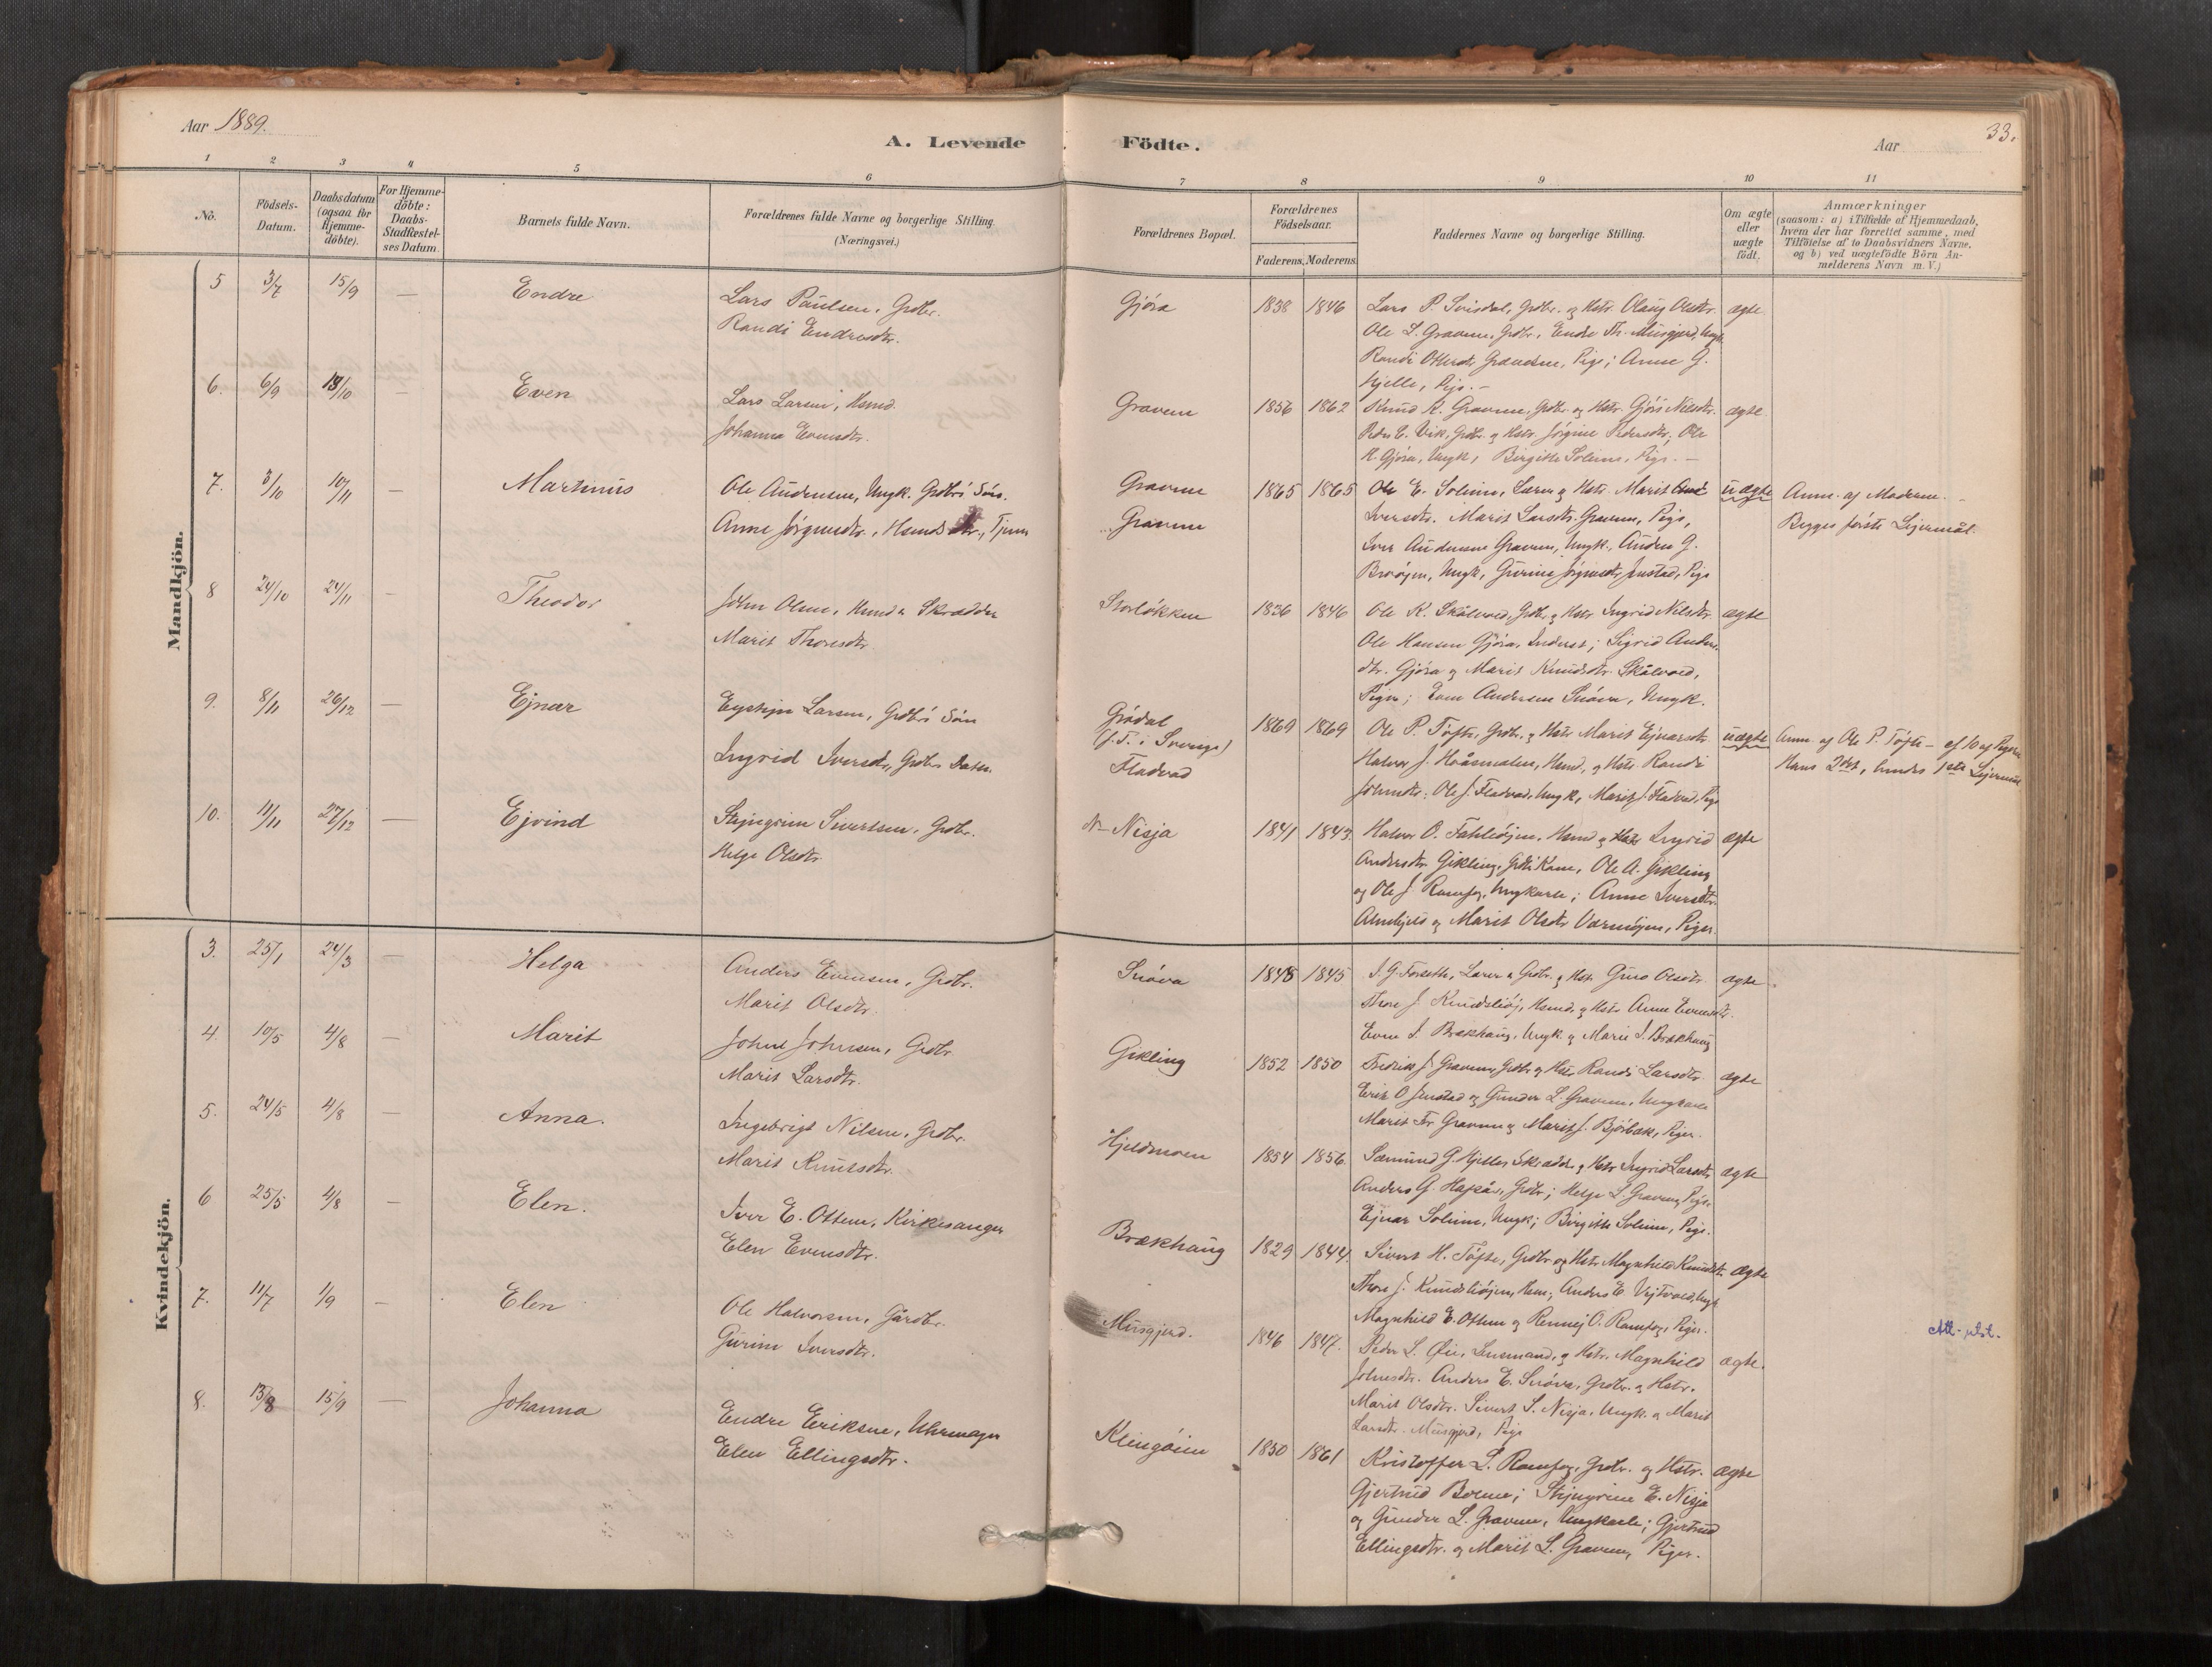 Aar 1889.
A. Levende Födte.
Aar
33.
1 2 3 4 5 6 7 8 9 10 11
No.
Födsels-
Datum.
Daabsdatum
(ogsaa for
Hjemme-
döbte).
For Hjemme-
döbte:
Daabs-
Stadfæstel-
ses Datum.
Barnets fulde Navn.
Forældrenes fulde Navne og borgerlige Stilling.
(Næringsvei.)
Forældrenes Bopæl.
Forældrenes
Födselsaar.
Faderens. Moderens.
Faddernes Navne og borgerlige Stilling.
Om ægte
eller
uægte
födt.
Anmærkninger
(saasom: a) i Tilfælde af Hjemmedaab,
hvem der har forrettet samme, med
Tilföielse af to Daabsvidners Navne.
og b) ved uægtefödte Börn An-
melderens Navn m. V.)
Mandkjön.
5 3/7 15/9 — Endre
Lars Paulsen, Grdbr.
Randi Endresdtr.
Gjöra 1838 1846
Lars P. Svisdal, Grdbr. og Hstr. Olaug Olsdtr.
Ole L. Gravem, Grdbr., Endre Th. Musgjerd, Ungk.
Randi Ottersdtr. Pige; Anne G.
Hjelle, Pige. —
ægte
6. 6/9 13/10 — Even
Lars Larsen, Hsmd.
Johanna Evensdtr.
Gravem 1856 1862
Knud K. Gravem, Grdbr. og Hstr. Gjöri Nilsdtr.
Peder E. Vik, Grdbr. og Hstr. Jörgine Pedersdtr., Ole
K. Gjöra, Ungk., Birgitte Solem, Pige. —
ægte
7. 3/10 10/11 — Martinus
Ole Andersen, Ungk. Grdbrs Sön.
Anne Jörgensdtr., Hsmds dtr., Tjen
Gravem
Gravem
1865 1865
Ole E. Solem, Lærer og Hstr. Marit
Iversdtr. Marit Larsdtr. Gravem, Pige,
Iver Andersen Gravem, Ungk., Anders G.
Ungk., Gurine Jörgensdtr. Jenstad, Pige
uægte
Anm. af Moderen. —
Begges förste Lejermål.
8 24/10 24/11 — Theodor
John Olsen, Hsmd & Skrædder
Marit Thoresdtr
Storlökken 1836 1846
Ole K. Skålvold, Grdbr. og Hstr. Ingrid Nilsdtr.
Ole Hansen Gjöra, Inderst; Sigrid Anders-
dtr. Gjöra og Marit Knudsdtr. Skålvold,
Piger; Even Andersen Snöva, Ungk.
ægte
9. 8/11 26/12 — Ejnar
Eystejn Larsen, Grdbrs Sön
Ingrid Iversdtr, Grdbrs Datter
Grödal
(f. T. i Sverige)
Fladvad
1869 1869
Ole P. Töfte, Grdbr. og Hstr. Marit Ejnarsdtr.
Halvor J. Hsmd, og Hstr. Randi
Johnsdtr. Ole J. Fladvad, Ungk, Marit J. Fladvad, Pige
uægte
Anm. af Ole P. Töfte —
Hans 2det, hendes 1ste Lejermål
10. 11/11 27/12 — Ejvind
Stejngrim Sivertsen, Grdbr.
Helga Olsdtr.
N– Nisja 1841 1843.
Halvor O. Hsmd og Hstr. Ingrid
Andersdtr. Gikling, Grdbr Kone, Ole A. Gikling
og Ole J. Romfog, Ungkarle; Anne Iversdtr.
Almskjels og Marit Olsdtr. Piger.
ægte
Kvindekjön.
3. 25/1 24/3 — Helga
Anders Evensen, Grdbr.
Marit Olsdtr.
Snöva 1845 1845
J. G. Forseth, Lærer & Grdbr. og Hstr. Guro Olsdtr.
Thore J. Hsmd, og Hstr. Anne Evensdtr.
Even I. Brækhaug, Ungk. og Marie I. Brækhaug
ægte.
4. 10/5 4/8 — Marit
John Johnsen, Grdbr.
Marit Larsdtr.
Gikling 1852 1850
Fredrik J. Gravem, Grdbr. og Hstr. Randi Larsdtr.
Erik O. Jenstad og Gunder L. Gravem, Ungkarle
Marit Fr. Gravem og Marit J. Björbæk, Piger.
ægte
5. 24/5 4/8 — Anna.
Ingebrigt Nilsen, Grdbr.
Marit Knutsdtr.
Hjeldmoen 1854 1856.
Sæmund G. Hjelle, Skrædder og Hstr. Ingrid Larsdtr.
Anders G. Hafsås, Grdbr.; Helge L. Gravem, Pige.
Ejnar Solem, Ungk; Birgitte Solem, Pige.
ægte
6 25/5 4/8 — Elen.
Iver E. Ottem, Kirkesanger
Elen Evensdtr.
Brækhaug 1829 1844.
Sivert H. Töfte, Grdbr. og Hstr. Magnhild Knudsdtr.
Thore J. Hsm., Anders E. Vejtvold, Ungk.
Magnhild E. Ottem og Rennej O. Romfog, Piger.
ægte
7. 11/7 1/9 — Elen
Ole Halvorsen, Gårdbr.
Gurine Iversdtr.
Musgjerd. 1846 1847.
Peder L. Öie, Lensmand, og Hstr. Magnhild
Johnsdtr. Anders E. Snöva, Grdbr. og Hstr.
Marit Olsdtr. Sivert S. Nisja, Ungk. og Marit
Larsdtr. Musgjerd, Pige
ægte.
Att. utst.
8. 13/8 15/9 — Johanna
Endre Eriksen, Uhrmager
Elen Ellingsdtr.
Klingöien 1850 1861
Kristoffer L. Romfog, Grdbr. og Hstr.
Gjertrud Stejngrim E. Nisja
og Gunder L. Gravem, Ungkarle; Gjertrud
Ellingsdtr. og Marit L. Gravem, Piger.
ægte